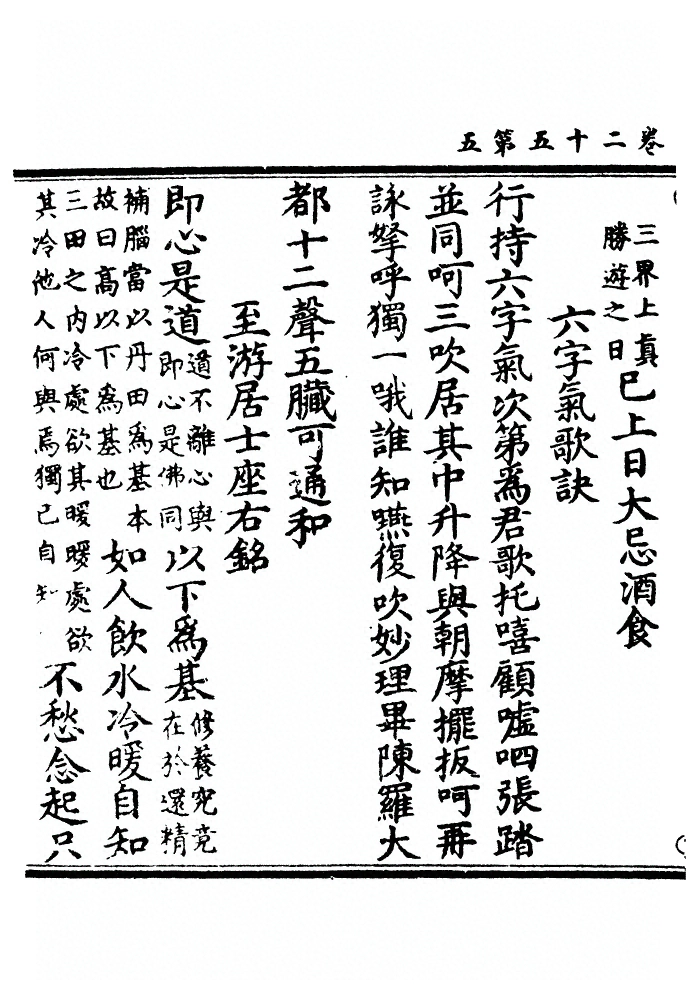 卷二十五第五
三界上眞
勝遊之日
已上日大忌酒食
六字氣歌訣
行持六字氣次第爲君歌托嘻顧噓呬張踏
並同呵三吹居其中升降與朝摩擺扳呵再
詠拏呼獨一哦誰知嚥復吹妙理畢陳羅大
都十二聲五臟可通和
至游居士座右銘
即心是道
道不離心與
即心是佛同
以下爲基
修養究竟
在於還精
補腦當以丹田爲基本
故曰高以下爲基也
如人飲水冷暖自知
三田之內冷處欲其暖暖處欲
其冷他人何與焉獨已自知
不愁念起只